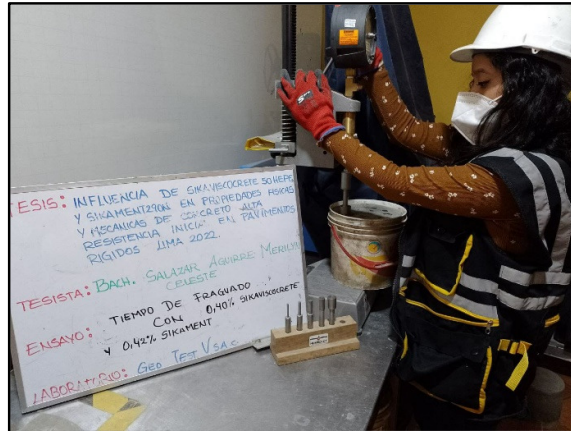 TESIS: INFLUENCIA DE SIKAVISCOCRETE 50HEPE
Y SIKAMENT290N EN PROPIEDADES FISICAS
Y MECANICAS DE CONCRETO ALTA
RESISTENCIA INICIAL EN PAVIMENTOS
RIGIDOS LIMA 2022.
TESISTA: BACH. SALAZAR AGUIRRE
CELESTE
ENSAYO: TIEMPO DE FRAGUADO
CON 0,40% SIKAVISCOCRETE
Y 0,42% SIKAMENT
LABORATORIO: GEO TEST V S.A.C.